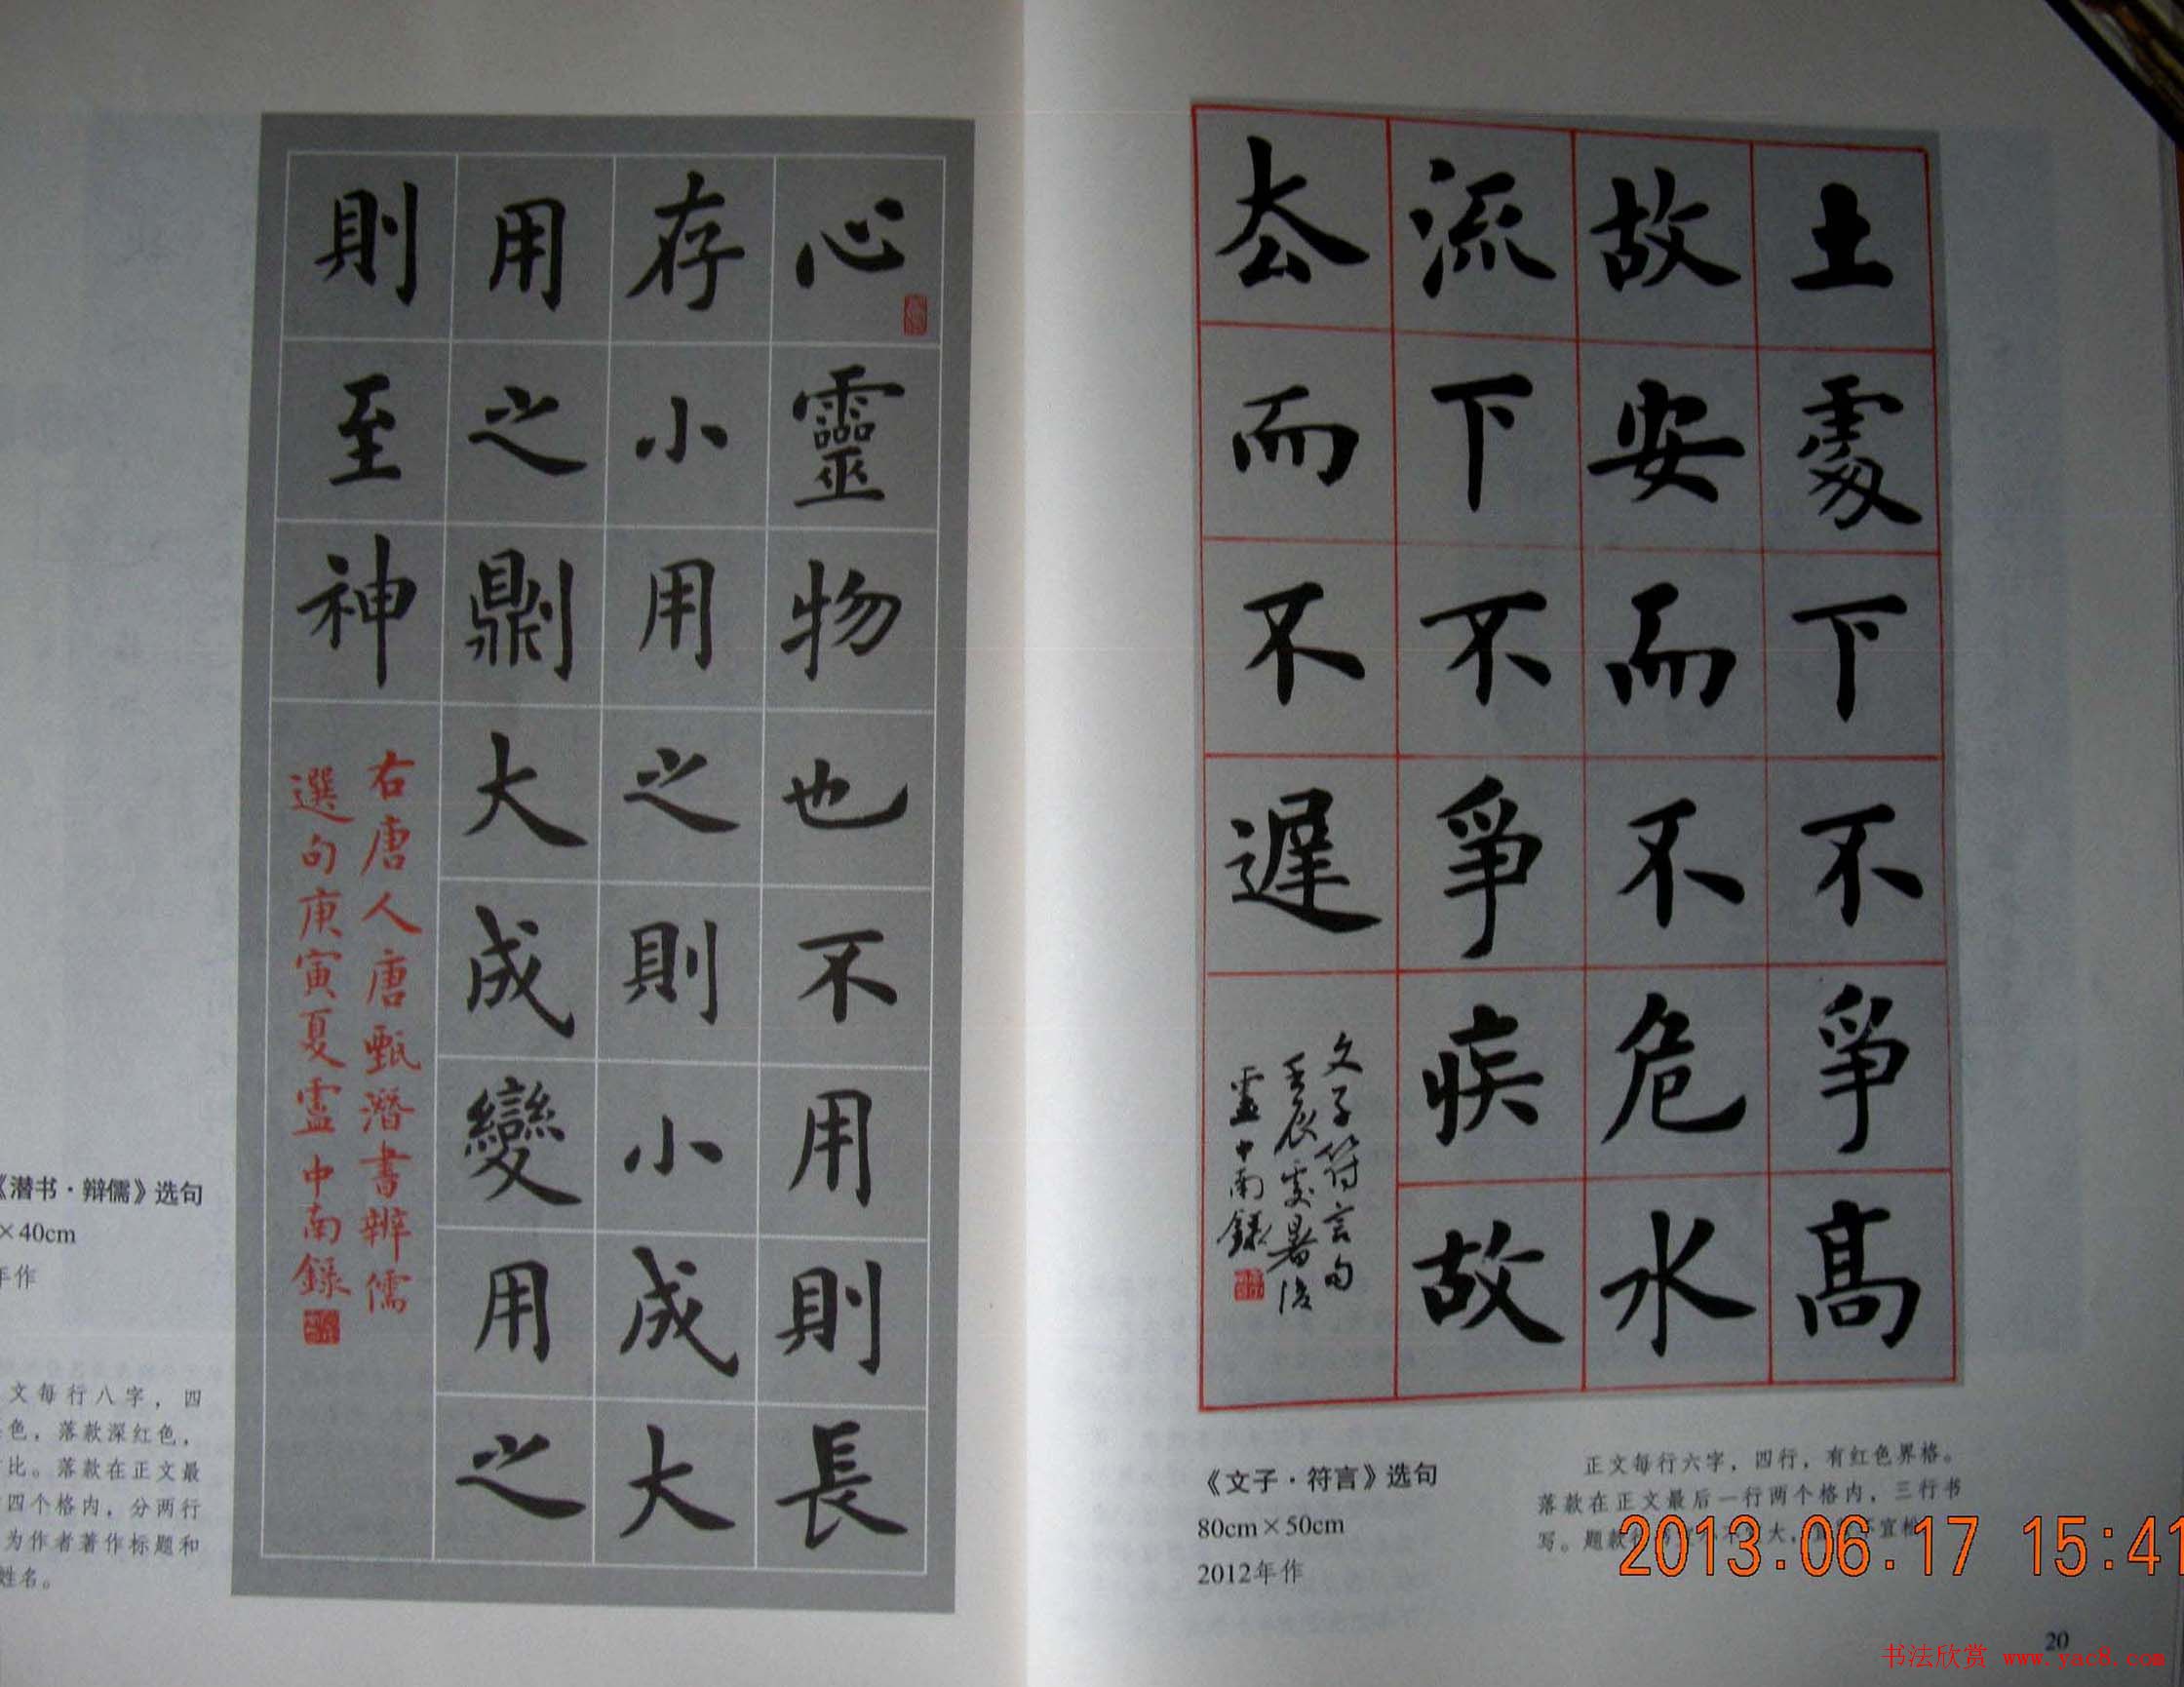 心靈物也不用則長
存小用之則小成大
用之則大成變用之
則至神
右唐人唐甄潛書辨儒
選句庚寅夏盧中南錄
《潜书·辩儒》选句
×40cm
年作
文每行八字，四
色，落款深红色，
比。落款在正文最
四个格内，分两行
为作者著作标题和
姓名。
土處下不爭高
故安而不危水
流下不爭疾故
厺而不遲
文子符言句
壬辰處暑後
盧中南錄
《文子·符言》选句
80cm×50cm
2012年作
正文每行六字，四行，有红色界格。
落款在正文最后一行两个格内，三行书
写。题款
2013.06.17 15:41
20
书法欣赏 www.yac8.com